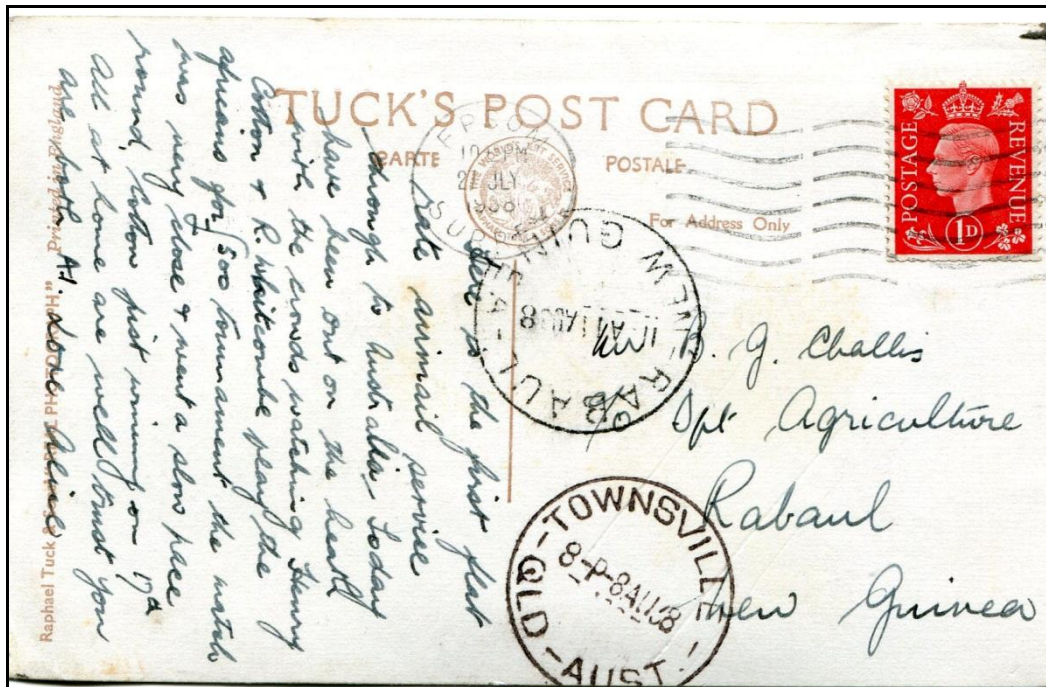 TUCK'S POST CARD
CARTE POSTALE
For Address Only
POSTAGE REVENUE
1D
EPSOM
PM
21 JLY
1938
SURREY
RABAUL
NEW GUINEA
1AU38
TOWNSVILLE
8-P-8AU38
QLD-AUST.
B. G. Challis
Dpt Agriculture
Rabaul
New Guinea
Here is the first flat
rate airmail service
through to Australia. Today
have been out on the heath
with the crowds watching Henry
Cotton & R. Whitcombe play the
africans for £500 tournament the match
was very close & went a slow pace
round, Cotton just winning on 17th
All at home are well trust you
are both A1. love Alice
Printed in England
Raphael Tuck & Sons "REAL PHOTOGRAPH"